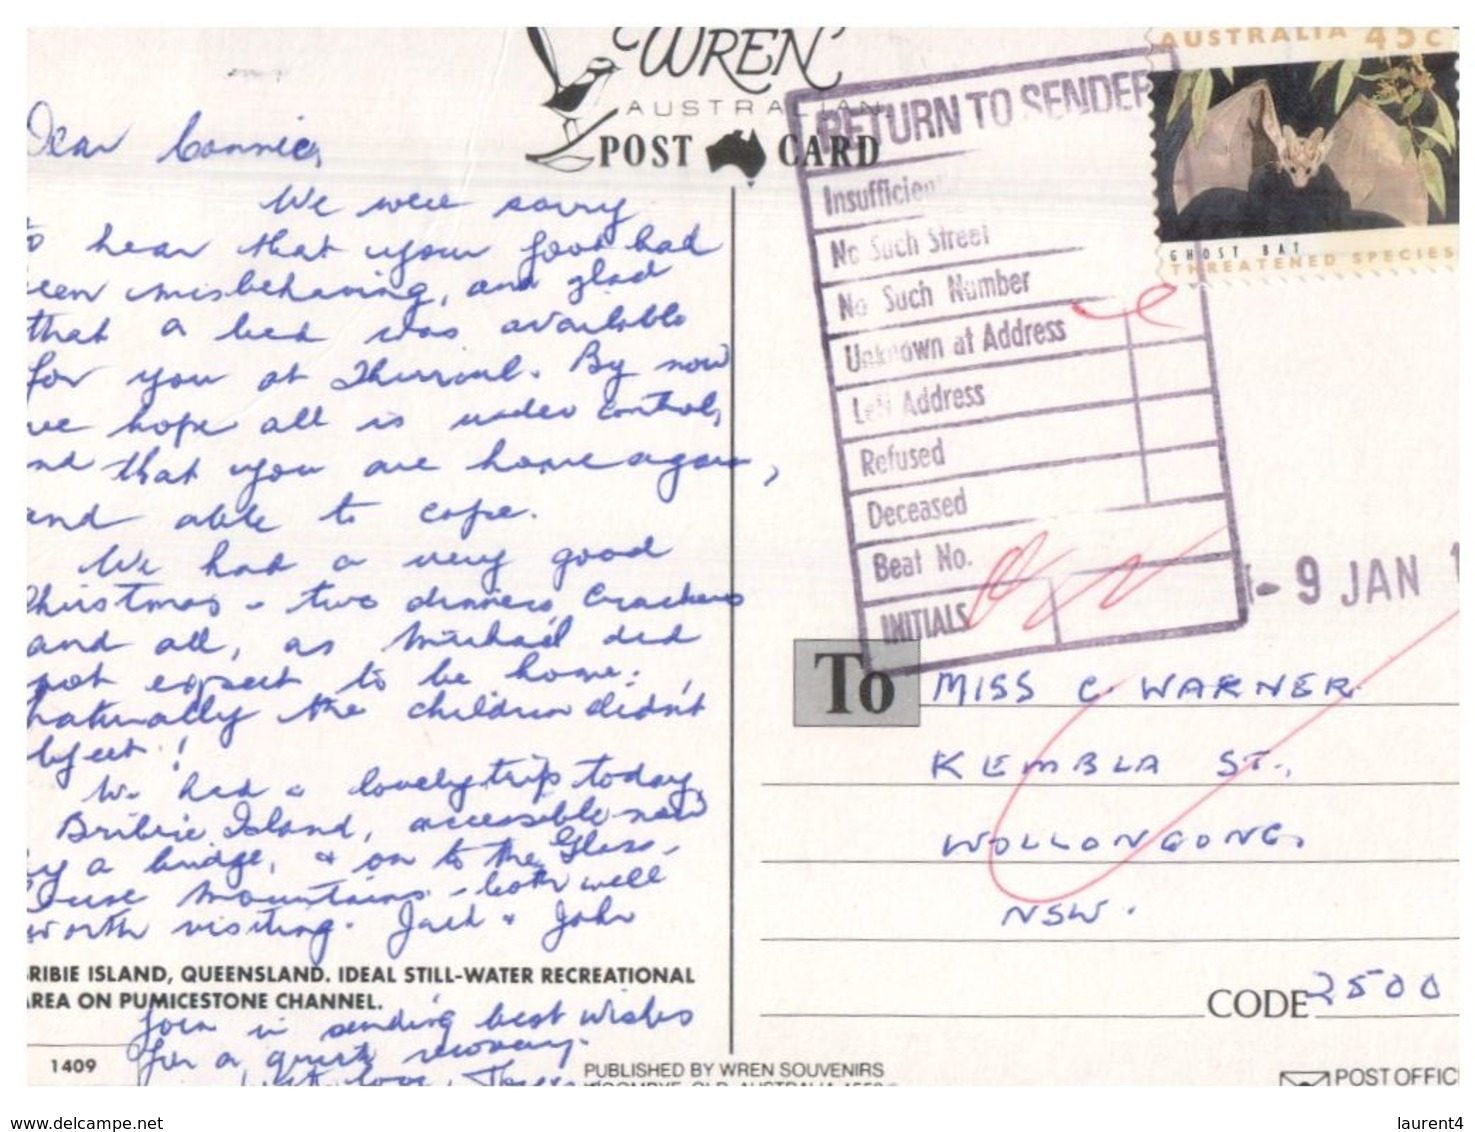 WREN
AUSTRALIAN
POST CARD
Dear Connie,
We were sorry
to hear that your foot had
been misbehaving, and glad
that a bed was available
for you at Thirroul. By now
we hope all is under control,
and that you are home again,
and able to cope.
We had a very good
Christmas - two dinners, crackers
and all, as Michael did
not expect to be home:
naturally the children didn't
object!
We had a lovely trip today,
Bribie Island, accessible now
by a bridge, & on to the Glass-
house Mountains - both well
worth visiting. Jack & John
BRIBIE ISLAND, QUEENSLAND. IDEAL STILL-WATER RECREATIONAL
AREA ON PUMICESTONE CHANNEL.
join in sending best wishes
for a quick recovery.
love,
1409
PUBLISHED BY WREN SOUVENIRS
RETURN TO SENDER
Insufficient
No Such Street
No Such Number
Unknown at Address
Left Address
Refused
Deceased
Beat No.
INITIALS
AUSTRALIA 45c
GHOST BAT
THREATENED SPECIES
- 9 JAN
To
MISS C. WARNER
KEMBLA ST.,
WOLLONGONG,
NSW.
CODE 2500
POST OFFIC
www.delcampe.net
laurent4